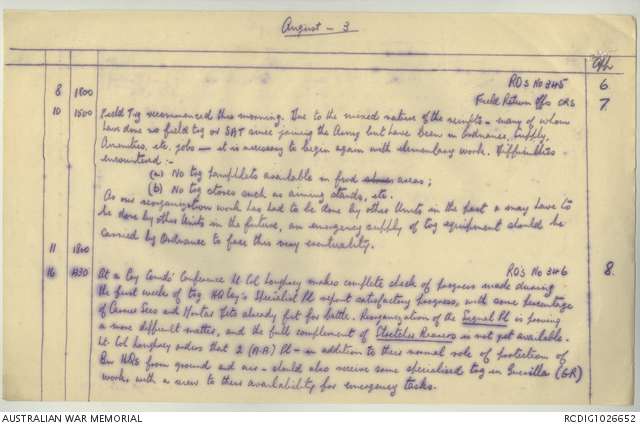 August - 3
App
RO's No 345 6.
8 1800 Field Return Offs ORS 7
10 1500 Field Tng recommenced this morning. Due to the mixed nature of the rcmpts - many of whom
have done no field tng or SAT since joining the Army but have been in Ordnance, Supply,
Amenities, etc. jobs - it is necessary to begin again with elementary work. Difficulties
encountered :-
(a) No tng pamphlets available in fwd areas;
(b) No tng stores such as aiming stands, etc.
As our reorganization work has had to be done by other Units in the past & may have to
be done by other Units in the future, an emergency supply of tng equipment should be
carried by Ordnance to face this very eventuality.
11 1800 RO's No 346 8.
16 1830 At a Coy Comds' Conference Lt Col Loughrey makes complete check of progress made during
the first weeks of tng. HQ Coy's Specialist Pl report satisfactory progress, with some percentage
of Carrier Secs and Mortar Dets already fit for battle. Reorganization of the Signal Pl is proving
a more difficult matter, and the full complement of Stretcher Bearers is not yet available.
Lt. Col Loughrey orders that 2 (A.A) Pl - in addition to their normal role of protection of
Bn HQs from ground and air - should also receive some specialised tng in Guerilla (GR)
work, with a view to their availability for emergency tasks.
AUSTRALIAN WAR MEMORIAL
RCDIG1026652